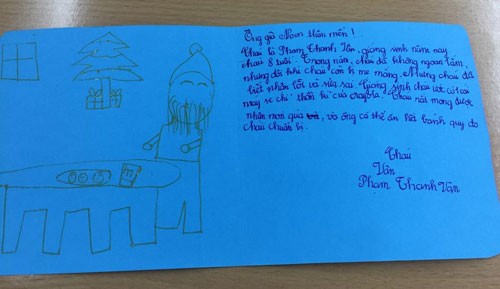 Ông già Noen thân mến !
Cháu là Phạm Thanh Vân, giáng sinh năm nay
cháu 8 tuổi. Trong năm, cháu đã không ngoan lắm,
nhưng đôi khi cháu còn bị mẹ mắng. Nhưng cháu đã
biết nhận lỗi và sửa sai. Giáng sinh cháu ước có cái
máy se chỉ thần kì của crayola. Cháu rất mong được
nhận món quà và ông có thể ăn hết bánh quy do
cháu chuẩn bị.
Cháu
Vân
Phạm Thanh Vân